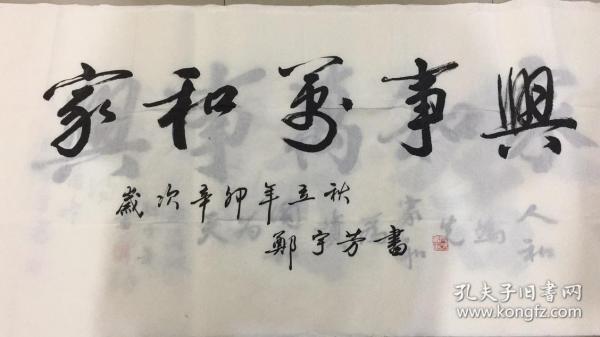 家和萬事興
歲次辛卯年立秋
鄭宇芳書
人和
孔夫子旧书网
www.kongfz.com